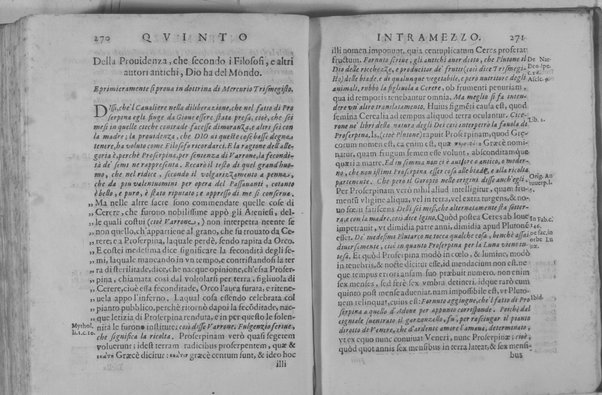 270 QVINTO
Della Prouidenza, che secondo i Filosofi, e altri
autori antichi, Dio ha del Mondo.
E primieramente si proua in dottrina di Mercurio Trismegisto.
Dissi, che'l Caualiere nella diliberazione, che nel fatto di Pro
serpina egli finge da Gioue essere stata presa, cioè, che sei
mesi in quelle cieche contrade facesse dimoranza, e altri sei con
la madre; la prouidenza, che DIO di queste cose basse degna
tenere, ha voluto come Filosofo ricordarci. E la ragione dell'alle
goria è, perchè Proserpina, per sentenza di Varrone, la fecondi
tà de' semi ne rappresenta. Recarò il testo di quel grand'huo
mo, che nel ridice, secondo il volgarizzamento a penna,
che da pur valentuomini per opra del Passauanti, cotanto
è bello, e puro, è stato riputato, e appresso di me si conserua.
„ Ma nelle altre sacre sono commendate quelle cose di
„ Cerere, che furono nobilissime appò gli Ateniesi, del-
„ le quali costui (cioè Varrone,) non interpetra niente se
„ non quello, ch'appartiene al grano, che fu trouato da Ce
„ rere; e a Proserpina, laquale perdè, sendo rapita da Orco.
„ E costei medesima dice significare la fecondità degli se-
„ mi, laquale mancando in vn tempo, e contristandosi la ter
„ ra di sterilitade, dice, che nacque opinione, ch'essa Proser-
„ pina, chiamata così dal vololarsi per terra, figliuola di
„ Cerere, cioè essa fecunditade, Orco l'aueua furata, e ritene-
„ uela appo l'inferno. Laqual cosa essendo celebrata col
„ pianto pubblico, perchè ritornò dapoi la fecoditade, nac-
„ que letizia di Proserpina renduta, e da indi in poi le solen-
„ nità le furono instituite: così disse Varrone. Fulgenzio scriue,
Mythol. li.1.c.10.
che significa la ricolta. Proserpinam verò quasi segetem
voluerunt; idest terram radicibus proserpentem, quæ &
Græcè dicitur: græcè centum sunt, & ideo hoc
illi
INTRAMEZZO. 271
illi nomen imponunt, quia centuplicatum Ceres proferat
fructum. Farnuto scriue, gli antichi auer detto, che Plutone
De Nat. Deo.
Dio delle ricchezze, e producitor de' frutti (così dice Trismegi-
sto) delle biade, e di qualunque vegetabile, e però nutritore degli
Asclé.
animali, rubbò la figliuola a Cerere, ob frumenti penuriam,
qua id temporis tenebantur omnia. Ma meglio si fa intende-
re da altro loro translatamento, Huius figmēti causa est, quod
semina Cerealia ad tempus aliquod terra occulentur. Cice-
Lib. 1.
rone ne' libri della natura degli Dei così interpretò la fauola di
Proserpina. Is (cioè Plutone) rapuit Proserpinam, quod Græ-
corum nomen est, ea enim est, quæ Græcè nomina-
tur, quam frugum semen esse volunt, absconditamque
quæri a matre. Ed in somma non ci è autore o antico, o moder-
no, che non istimi Proserpina esser cosa alle biade, e alla ricolta
partenente. Che però il Goropio nelle origini disse anch'egli.
Orig. Antuuerp.l.
Per Proserpinam verò nihil aliud intelligitur, quam eius-
mensus virgineæ aliquæ, vel in terra, vel extra turgens, & no-
uo se in satis facena. Delli sei mesi, che alternamente sta sotter-
ra, e con la madre, così dice Igino. Quòd postea Ceres ab Ioue
In Fab. c. 146.
impetrauit, vt dimidia parte anni, apud matrem, dimidia apud Plutonē
esset. De medesimo Plutarco ne tocca qualche cosa, benchè assai
diuersamente, ciò in quanto Proserpina per la Luna communemente
De fac. in orbe Lunæ
tolse. Et quòd Proserpina modo in cœlo, & lumine, modò
in tenebris, & nocte diceretur esse, id mendacium non est, ne-
que tempus errori ansam suo præbuit numero, non enim
sex menses, sed ferè sex vmbra detinent, idque rarò cum
quinto post mense adueniat, nam impossibile est, vt Pluto-
nem relinquat, cuius est: Farnuto aggiugne, che il fatto di Pro
Ibid.
serpina a quello di Adone per appunto corrisponde. Perchè dal
cignale (uentrato il garzoncello, fu, per racchiugar il pianto
diretto di Venere, che d'ardente amore l'amaua, determinato,
vt ex equo nunc conuiuat Veneri, nunc Proserpinæ; cioè,
quòd quot annis sex mensibus in terra lateat, & sex mensi-
bus